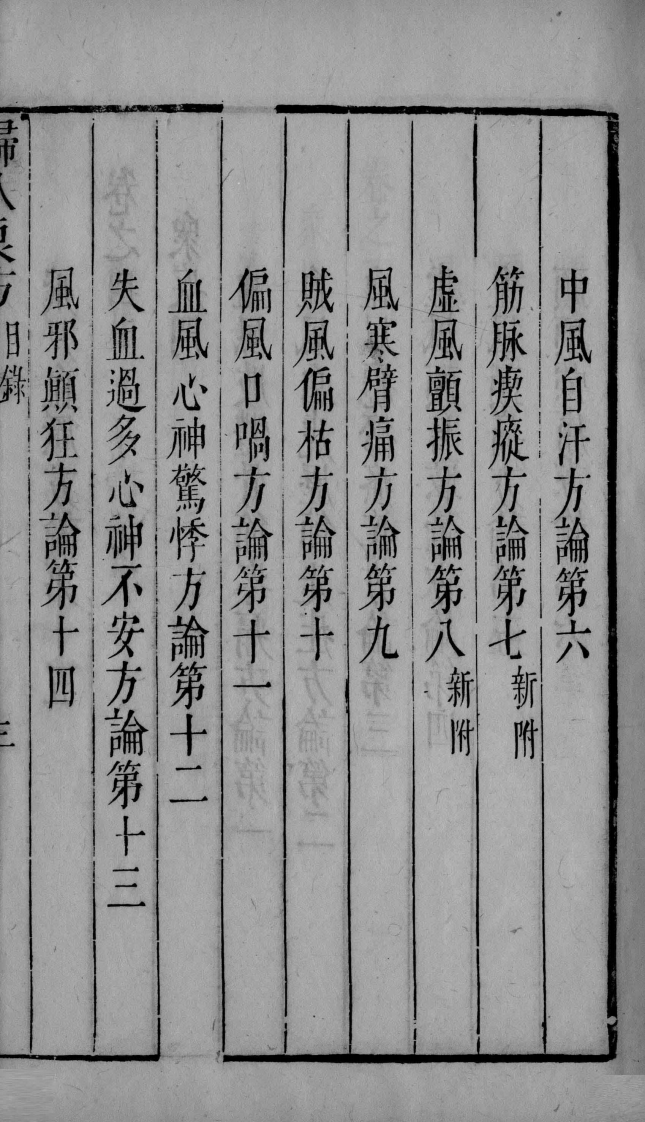 中風自汗方論第六
筋脉瘈瘲方論第七新附
虚風顫振方論第八新附
風寒臂痛方論第九
賊風偏枯方論第十
偏風口喎方論第十一
血風心神驚悸方論第十二
失血過多心神不安方論第十三
風邪顚狂方論第十四
婦人良方 目錄 三